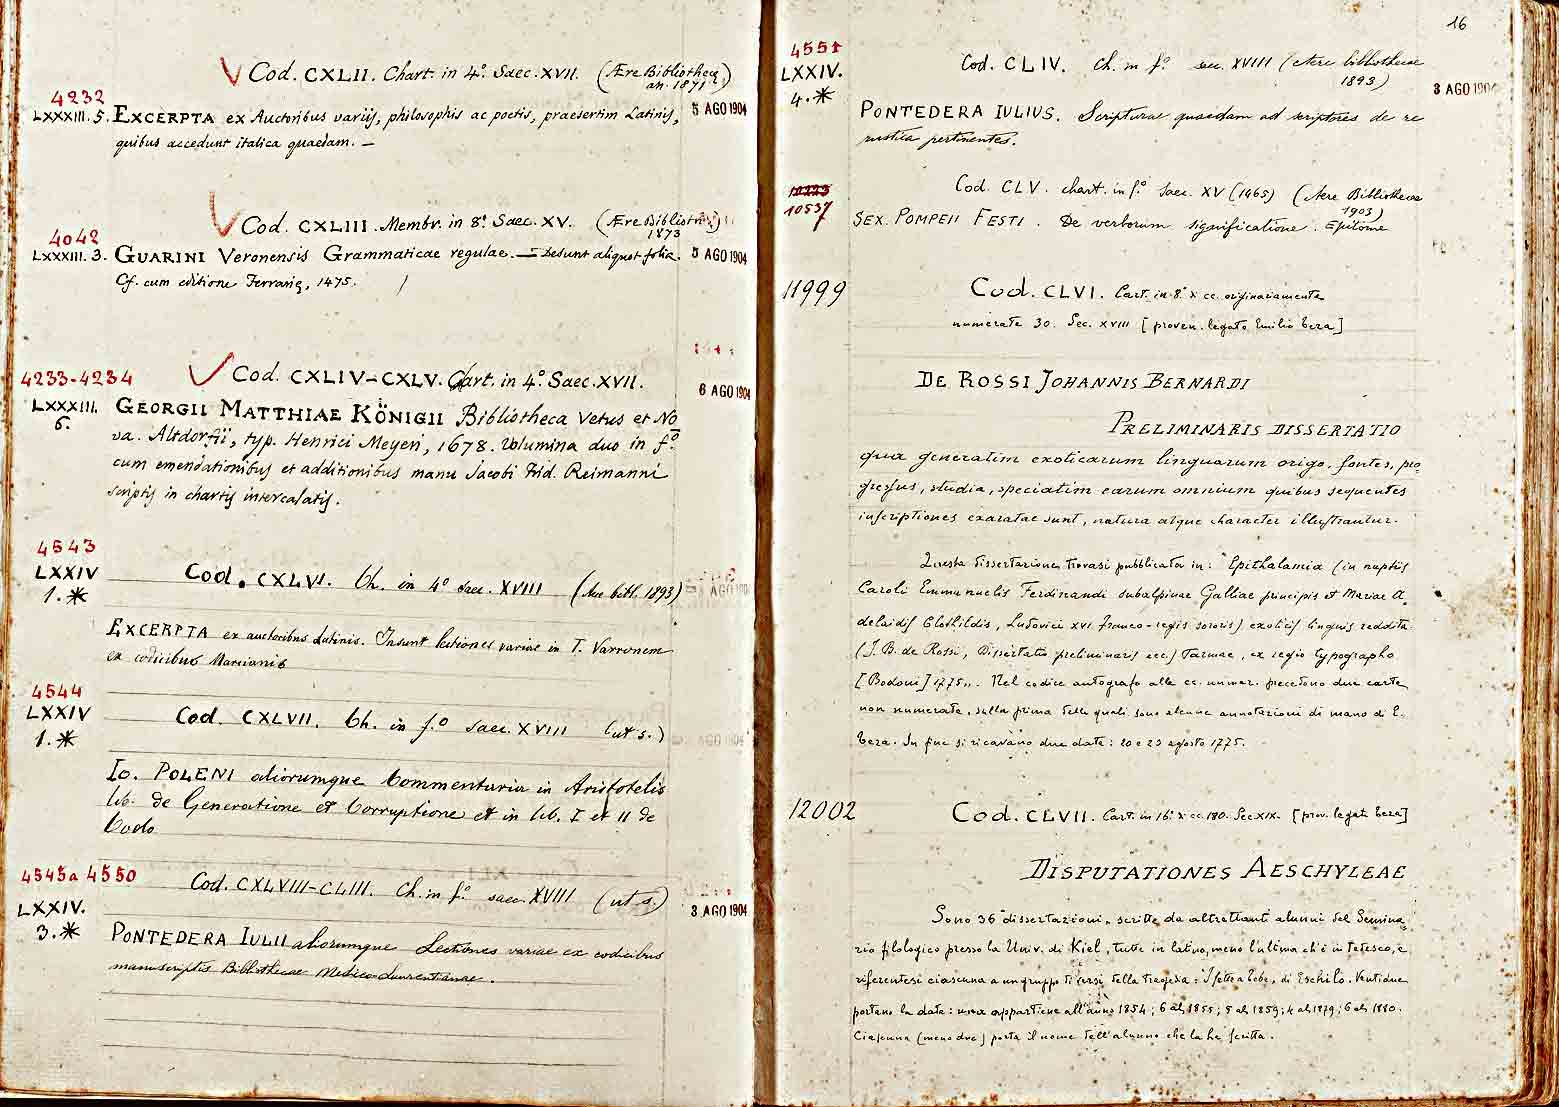 V Cod. CXLII. Chart. in 4º. Saec. XVII. (Ære Bibliothecæ
an. 1871)
4232
LXXXIII. 5. EXCERPTA ex Auctoribus variis, philosophis ac poetis, praesertim Latinis, 5 AGO 1904
quibus accedunt italica quaedam. —
V Cod. CXLIII. Membr. in 8º. Saec. XV. (Ære Bibliothecæ)
1873
4042
LXXXIII. 3. GUARINI Veronensis Grammaticae regulae. — Desunt aliquot folia. 5 AGO 1904
Cf. cum editione Ferrariæ, 1475.
4233-4234 V Cod. CXLIV-CXLV. Chart. in 4º. Saec. XVII. 6 AGO 1904
LXXXIII. GEORGII MATTHIAE KÖNIGII Bibliotheca Vetus et No
6. va. Altdorfii, typ. Henrici Meyeri, 1678. Volumina duo in fº.
cum emendationibus et additionibus manu Jacobi Frid. Reimanni
scriptis in chartis intercalatis.
4543
LXXIV Cod. CXLVI. Ch. in 4º saec. XVIII (Aere bibl. 1893) AGO
1. *
EXCERPTA ex auctoribus Latinis. Insunt lectiones variae in T. Varronem
ex codicibus Marcianis
4544
LXXIV Cod. CXLVII. Ch. in f.º saec. XVIII (ut s.)
1. * AGO 1904
Io. POLENI aliorumque Commentaria in Aristotelis
lib. de Generatione et Corruptione et in lib. I et II de
Coelo
4545a 4550 Cod. CXLVIII-CLIII. Ch. in fº. saec. XVIII (ut s.)
LXXIV. 3 AGO 1904
3. * PONTEDERA IULII aliorumque Lectiones variae ex codicibus
manuscriptis Bibliothecae Mediceo-Laurentianae.
16
4551
LXXIV. Cod. CLIV. Ch. in fº. saec. XVIII (Aere bibliothecae
1893)
4. * 3 AGO 1904
PONTEDERA IULIUS. Scripturae quaedam ad scriptores de re
rustica pertinentes.
10223 Cod. CLV. chart. in f.º Saec. XV (1465) (Aere Bibliothecae
1903)
10537 SEX. POMPEII FESTI. De verborum significatione. Epitome
11999 Cod. CLVI. Cart. in 8º. x cc. originariamente
numerate 30. Sec. XVIII [proven. legato Emilio Teza]
DE ROSSI JOHANNIS BERNARDI
PRELIMINARIS DISSERTATIO
qua generatim exoticarum linguarum origo, fontes, pro
gressus, studia, speciatim earum omnium quibus sequentes
inscriptiones exaratae sunt, natura atque character illustrantur.
Questa dissertazione trovasi pubblicata in: "Epithalamia (in nuptiis
Caroli Emmanuelis Ferdinandi subalpinae Galliae principis et Mariae A.
delaidis Clothildis, Ludovici XVI franco-regis sororis) exoticis linguis reddita.
(J. B. de Rossi, Dissertatio preliminaris ecc.) Parmae, ex regio typographo
[Bodoni] 1775". Nel codice autografo alle cc. numer. precedono due carte
non numerate, sulla prima delle quali sono alcune annotazioni di mano di E.
Teza. In fine si ricavano due date: 20 e 29 agosto 1775.
12002 Cod. CLVII. Cart. in 16º. x cc. 180. Sec XIX. [prov. legato Teza]
DISPUTATIONES AESCHYLEAE
Sono 36 dissertazioni, scritte da altrettanti alunni del Semina
rio filologico presso la Univ. di Kiel, tutte in latino, meno l'ultima ch'è in tedesco, e
riferentesi ciascuna a un gruppo di versi della tragedia: I sette a Tebe, di Eschilo. Ventidue
portano la data: una appartiene all'anno 1854; 6 al 1855; 5 al 1859; 4 al 1879; 6 al 1880.
Ciascuna (meno due) porta il nome dell'alunno che la ha scritta.